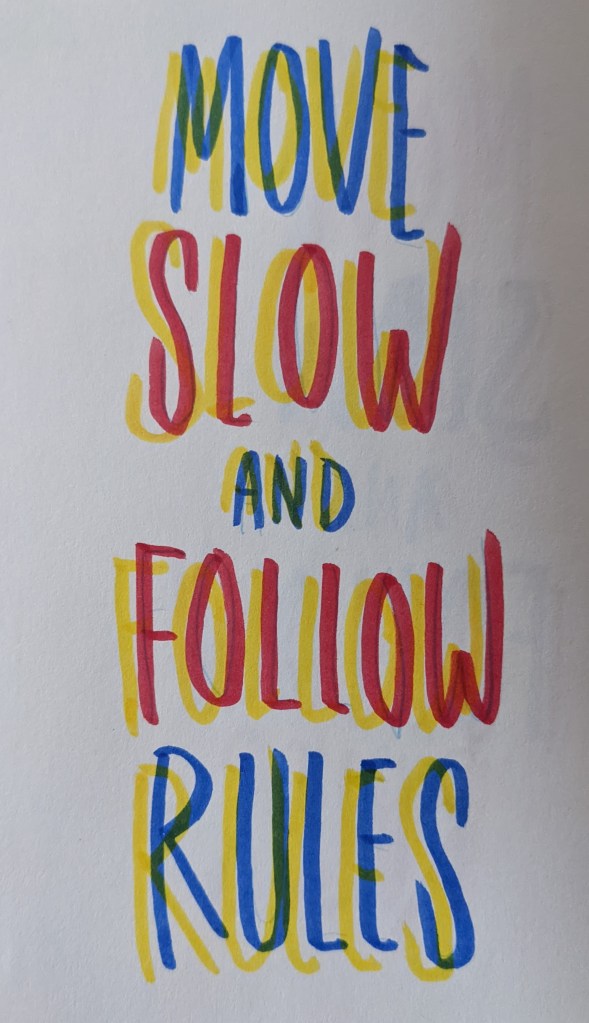 MOVE
SLOW
AND
FOLLOW
RULES